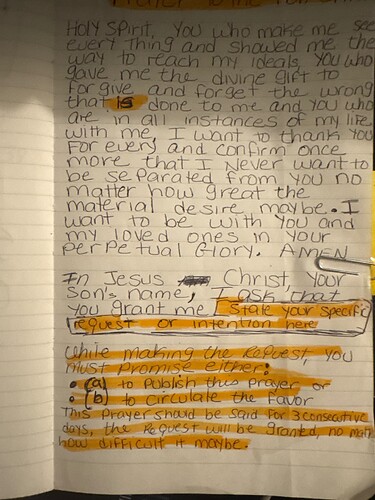 HOLY SPIRIT, YOU who make me see
every Thing and showed me the
way to reach my ideals, you who
gave me the divine gift to
Forgive and forget the wrong
that is done to me and you who
are in all instances of my life
with me, I want to thank you
For every and confirm once
more that I Never want to
be separated from you no
matter how great the
material desire maybe. I
want to be with you and
my loved ones in your
Perpetual Glory. AMEN
In Jesus Christ, Your
Son's name, I ask that
you grant me [State your specific
request or intention here
While making the Request, you
Must Promise either:
• (a) to Publish this Prayer or
• (b) to Circulate the Favor
This Prayer should be said For 3 consecutive
days, the Request will be granted, no
how difficult it maybe.